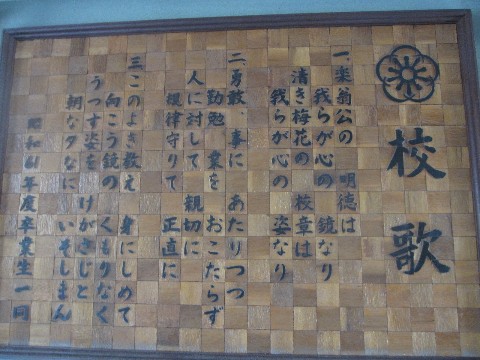 校歌
一、楽翁公の 明徳は
我らが心の 鏡なり
清き梅花の 校章は
我らが心の 姿なり
二、勇敢 事に あたりつつ
勤勉 業を おこたらず
人に対して 親切に
規律守りて 正直に
三、このよき教え 身にしめて
向こう鏡の くもりなく
うつす姿を けがさじと
朝な夕なに いそしまん
昭和61年度卒業生一同